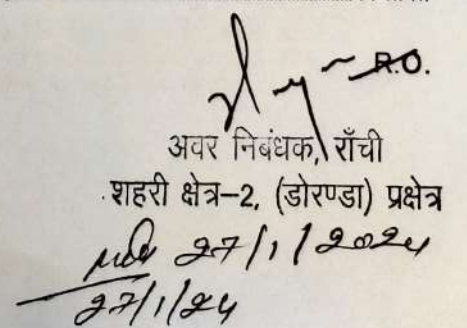 R.O.
अवर निबंधक, राँची
शहरी क्षेत्र-2, (डोरण्डा) प्रक्षेत्र
27/1/2024
27/1/24